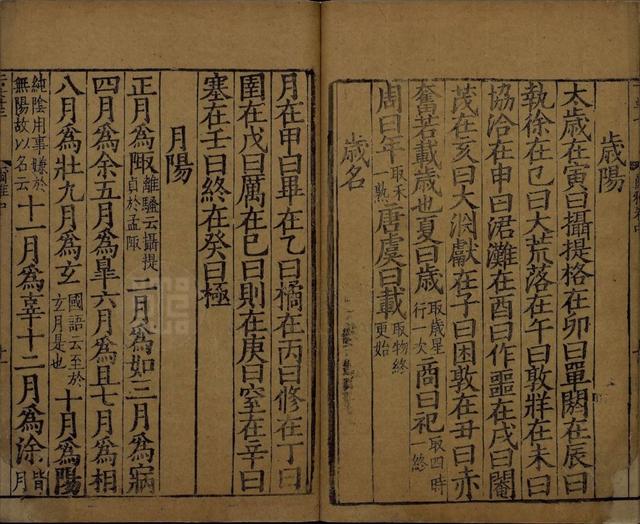 歲陽
太歲在寅曰攝提格在卯曰單閼在辰曰
執徐在巳曰大荒落在午曰敦牂在未曰
協洽在申曰涒灘在酉曰作噩在戌曰閹
茂在亥曰大淵獻在子曰困敦在丑曰赤
奮若載歲也夏曰歲取歲星行一次商曰祀取四時一終
周曰年取禾一熟唐虞曰載取物終更始
歲名
月在甲曰畢在乙曰橘在丙曰修在丁曰
圉在戊曰厲在己曰則在庚曰窒在辛曰
塞在壬曰終在癸曰極
月陽
正月為陬離騷云攝提貞於孟陬二月為如三月為寎
四月為余五月為皐六月為且七月為相
八月為壯九月為玄國語云至於玄月是也十月為陽
純陰用事嫌於無陽故以名云十一月為辜十二月為涂皆月